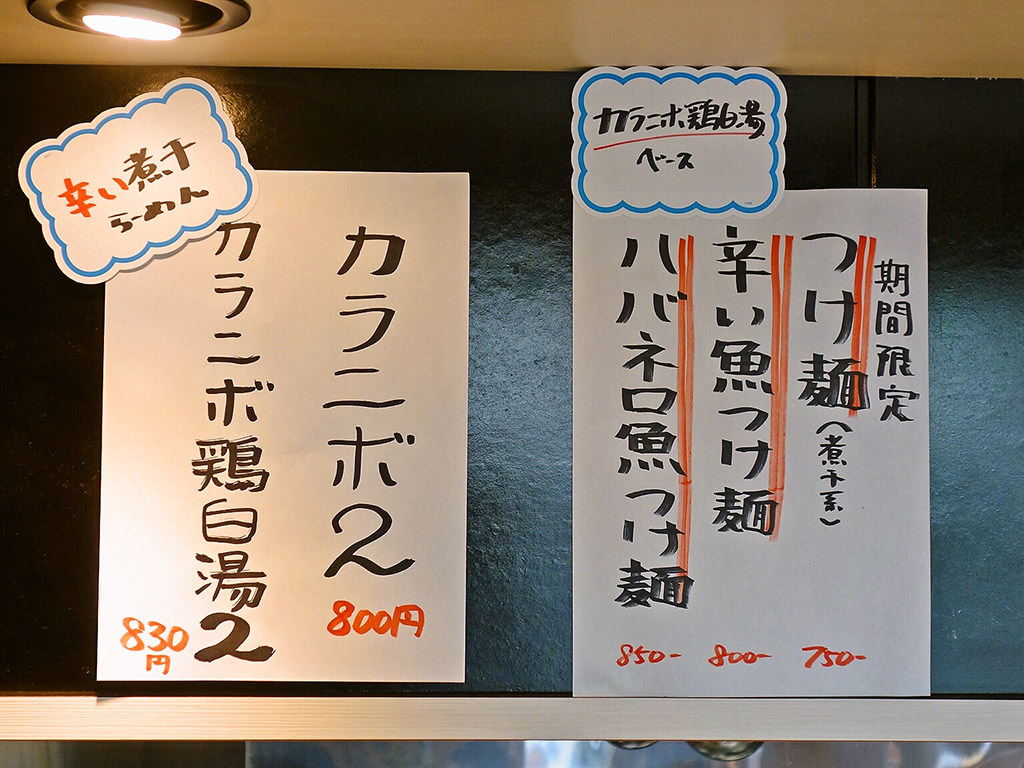 辛い煮干
らーめん
カラニボ2
800円
カラニボ鶏白湯2
830
円
カラニボ鶏白湯
ベース
期間限定
つけ麺(煮干系)
750-
辛い魚つけ麺
800-
ハバネロ魚つけ麺
850-